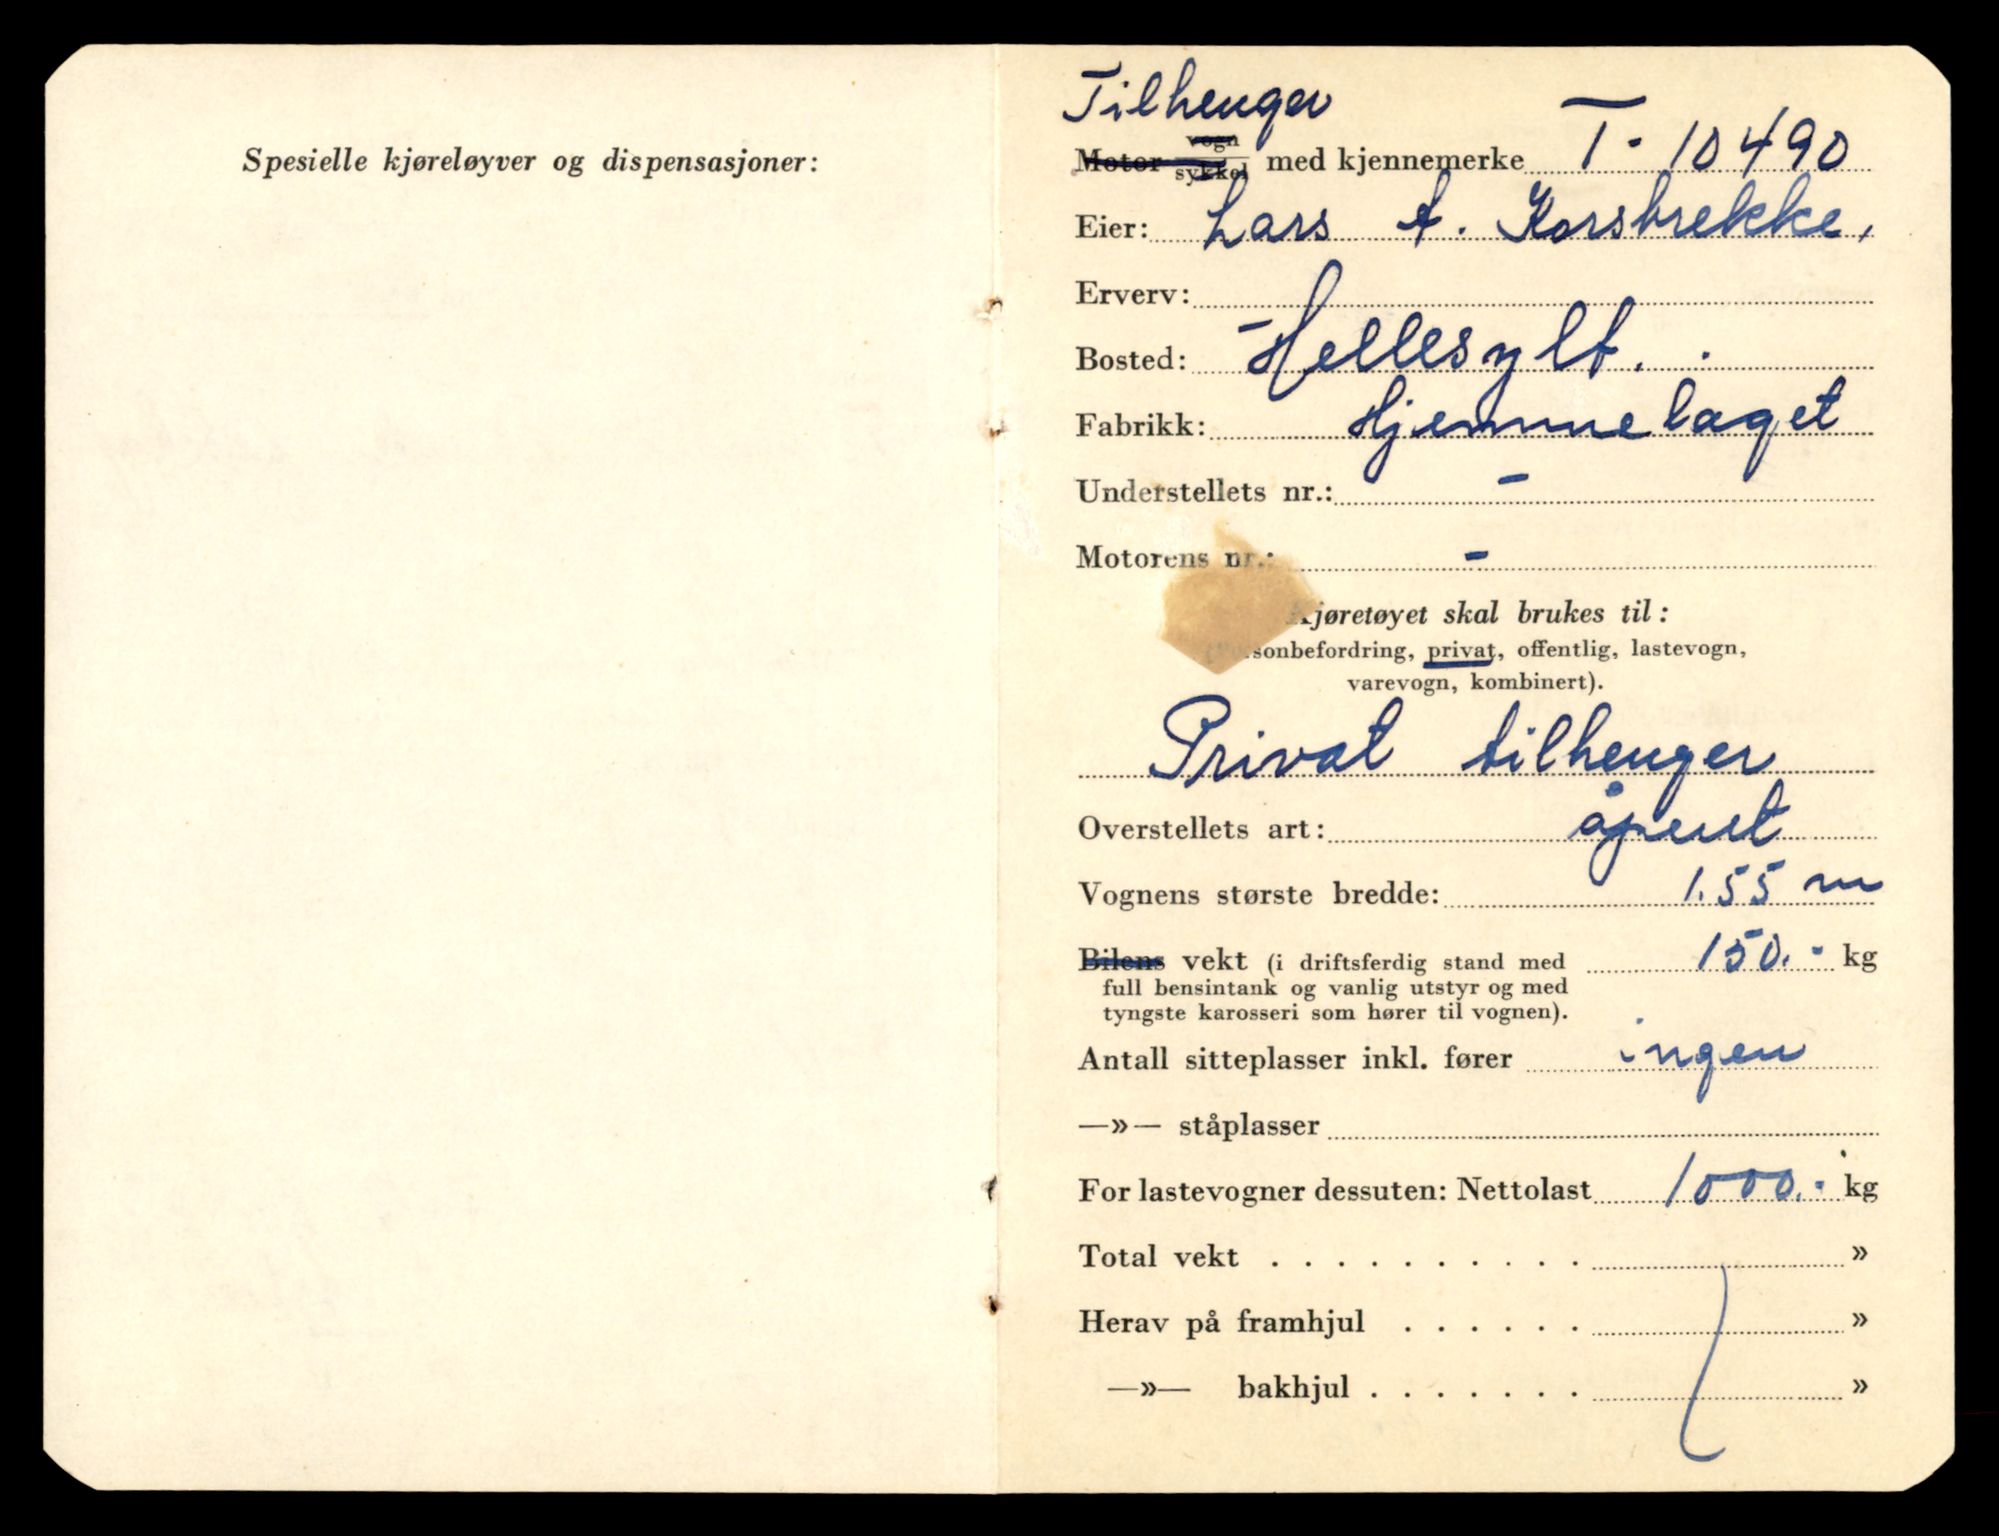 Spesielle kjøreløyver og dispensasjoner:
Tilhenger
Motor vogn sykkel med kjennemerke T - 10490
Eier: Lars A. Korsbrekke,
Erverv:
Bosted: Hellesylt.
Fabrikk: Hjemmelaget
Understellets nr.: -
Motorens nr.: -
Kjøretøyet skal brukes til:
(Personbefordring, privat, offentlig, lastevogn,
varevogn, kombinert).
Privat tilhenger
Overstellets art: åpent
Vognens største bredde: 1.55 m
Bilens vekt (i driftsferdig stand med 150.- kg
full bensintank og vanlig utstyr og med
tyngste karosseri som hører til vognen).
Antall sitteplasser inkl. fører ingen
—»— ståplasser
For lastevogner dessuten: Nettolast 1000.- kg
Total vekt . . . . . . . . . . »
Herav på framhjul . . . . . . »
—»— bakhjul . . . . . . . »